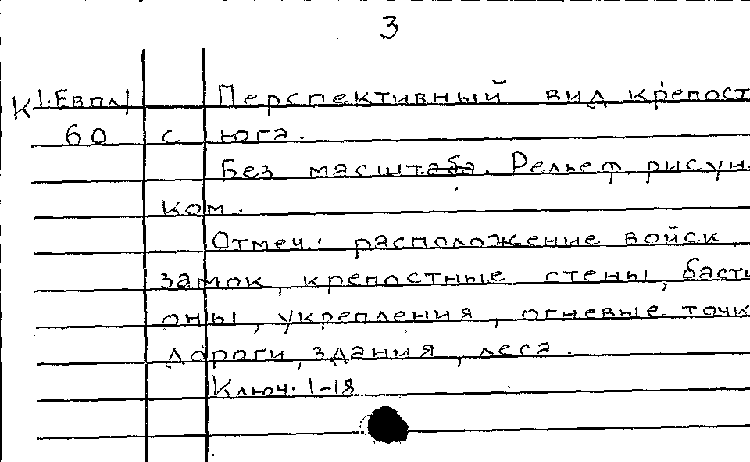 3
К1.Евпл1 Перспективный вид крепост
60 с юга.
Без масштаба. Рельеф рисун
ком.
Отмеч.: расположение войск,
замок, крепостные стены, басти
оны, укрепления, огневые точк
дороги, здания, леса.
Ключ: 1-18